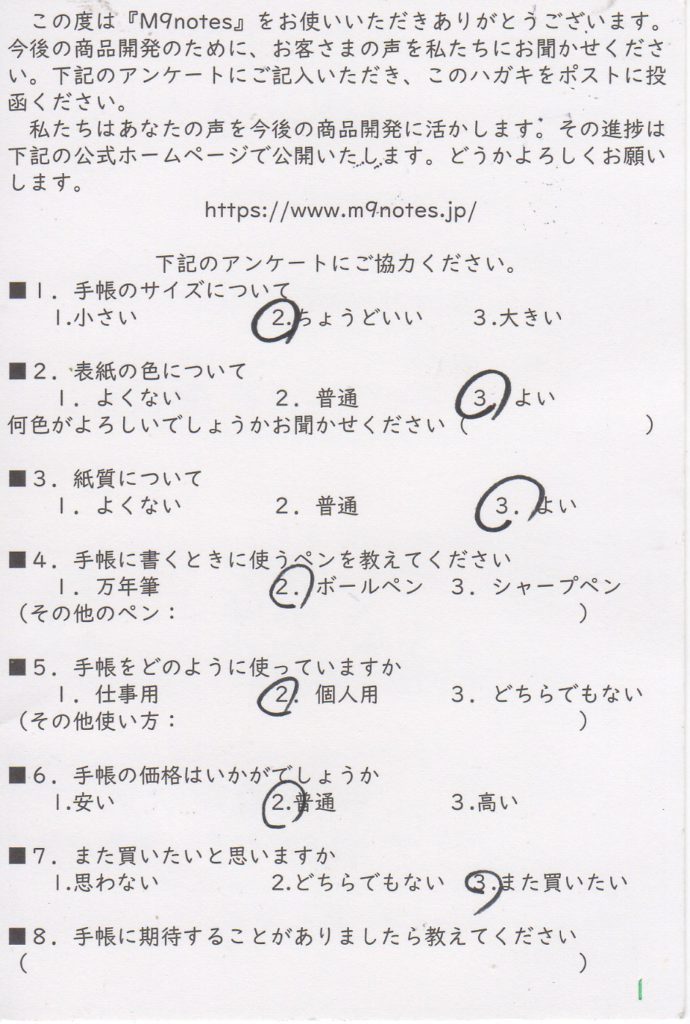 この度は『M9notes』をお使いいただきありがとうございます。
今後の商品開発のために、お客さまの声を私たちにお聞かせくださ
い。下記のアンケートにご記入いただき、このハガキをポストに投
函ください。
私たちはあなたの声を今後の商品開発に活かします。その進捗は
下記の公式ホームページで公開いたします。どうかよろしくお願い
します。
https://www.m9notes.jp/
下記のアンケートにご協力ください。
■1．手帳のサイズについて
1.小さい 2.ちょうどいい 3.大きい
■2．表紙の色について
1．よくない 2．普通 3．よい
何色がよろしいでしょうかお聞かせください（ ）
■3．紙質について
1．よくない 2．普通 3．よい
■4．手帳に書くときに使うペンを教えてください
1．万年筆 2．ボールペン 3．シャープペン
（その他のペン： ）
■5．手帳をどのように使っていますか
1．仕事用 2．個人用 3．どちらでもない
（その他使い方： ）
■6．手帳の価格はいかがでしょうか
1.安い 2.普通 3.高い
■7．また買いたいと思いますか
1.思わない 2.どちらでもない 3.また買いたい
■8．手帳に期待することがありましたら教えてください
（ ）
1